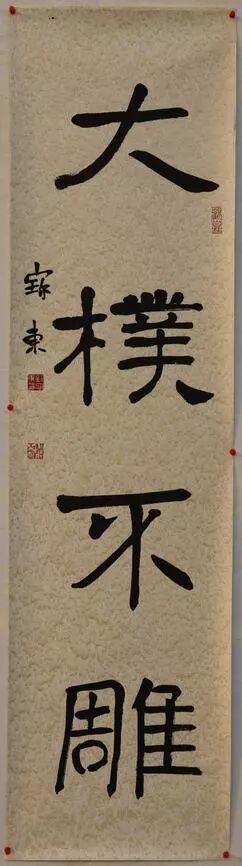 大樸不雕
東